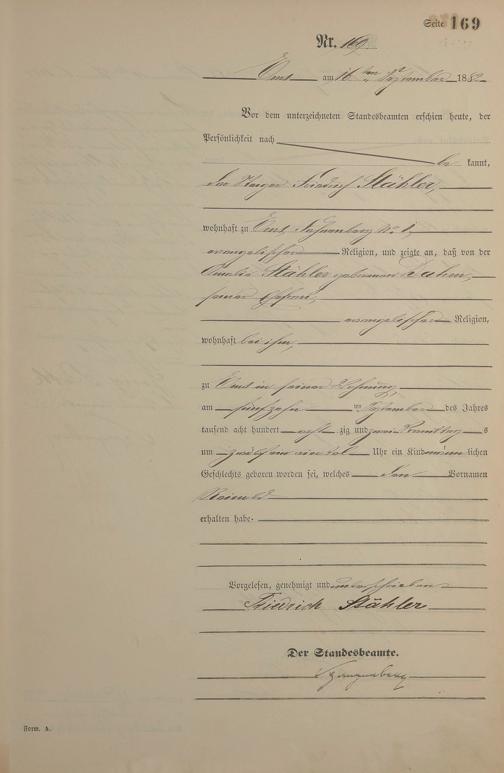 Seite 169
Nr. 169
Ems am 16 ten September 188
Vor dem unterzeichneten Standesbeamten erschien heute, der
Persönlichkeit nach
be kannt,
der Friedrich Stähler,
wohnhaft zu Ems, No
evangelischer Religion, und zeigte an, daß von der
Stähler geborenen
seiner Ehefrau,
evangelischer Religion,
wohnhaft bei ihm,
zu Ems in seiner Wohnung,
am fünfzehn ten September des Jahres
tausend acht hundert acht zig und zwei Vormittags
um Uhr ein Kind männlichen
Geschlechts geboren worden sei, welches den Vornamen
erhalten habe.
Vorgelesen, genehmigt und unterschrieben
Friedrich Stähler
Der Standesbeamte.
Form. A.